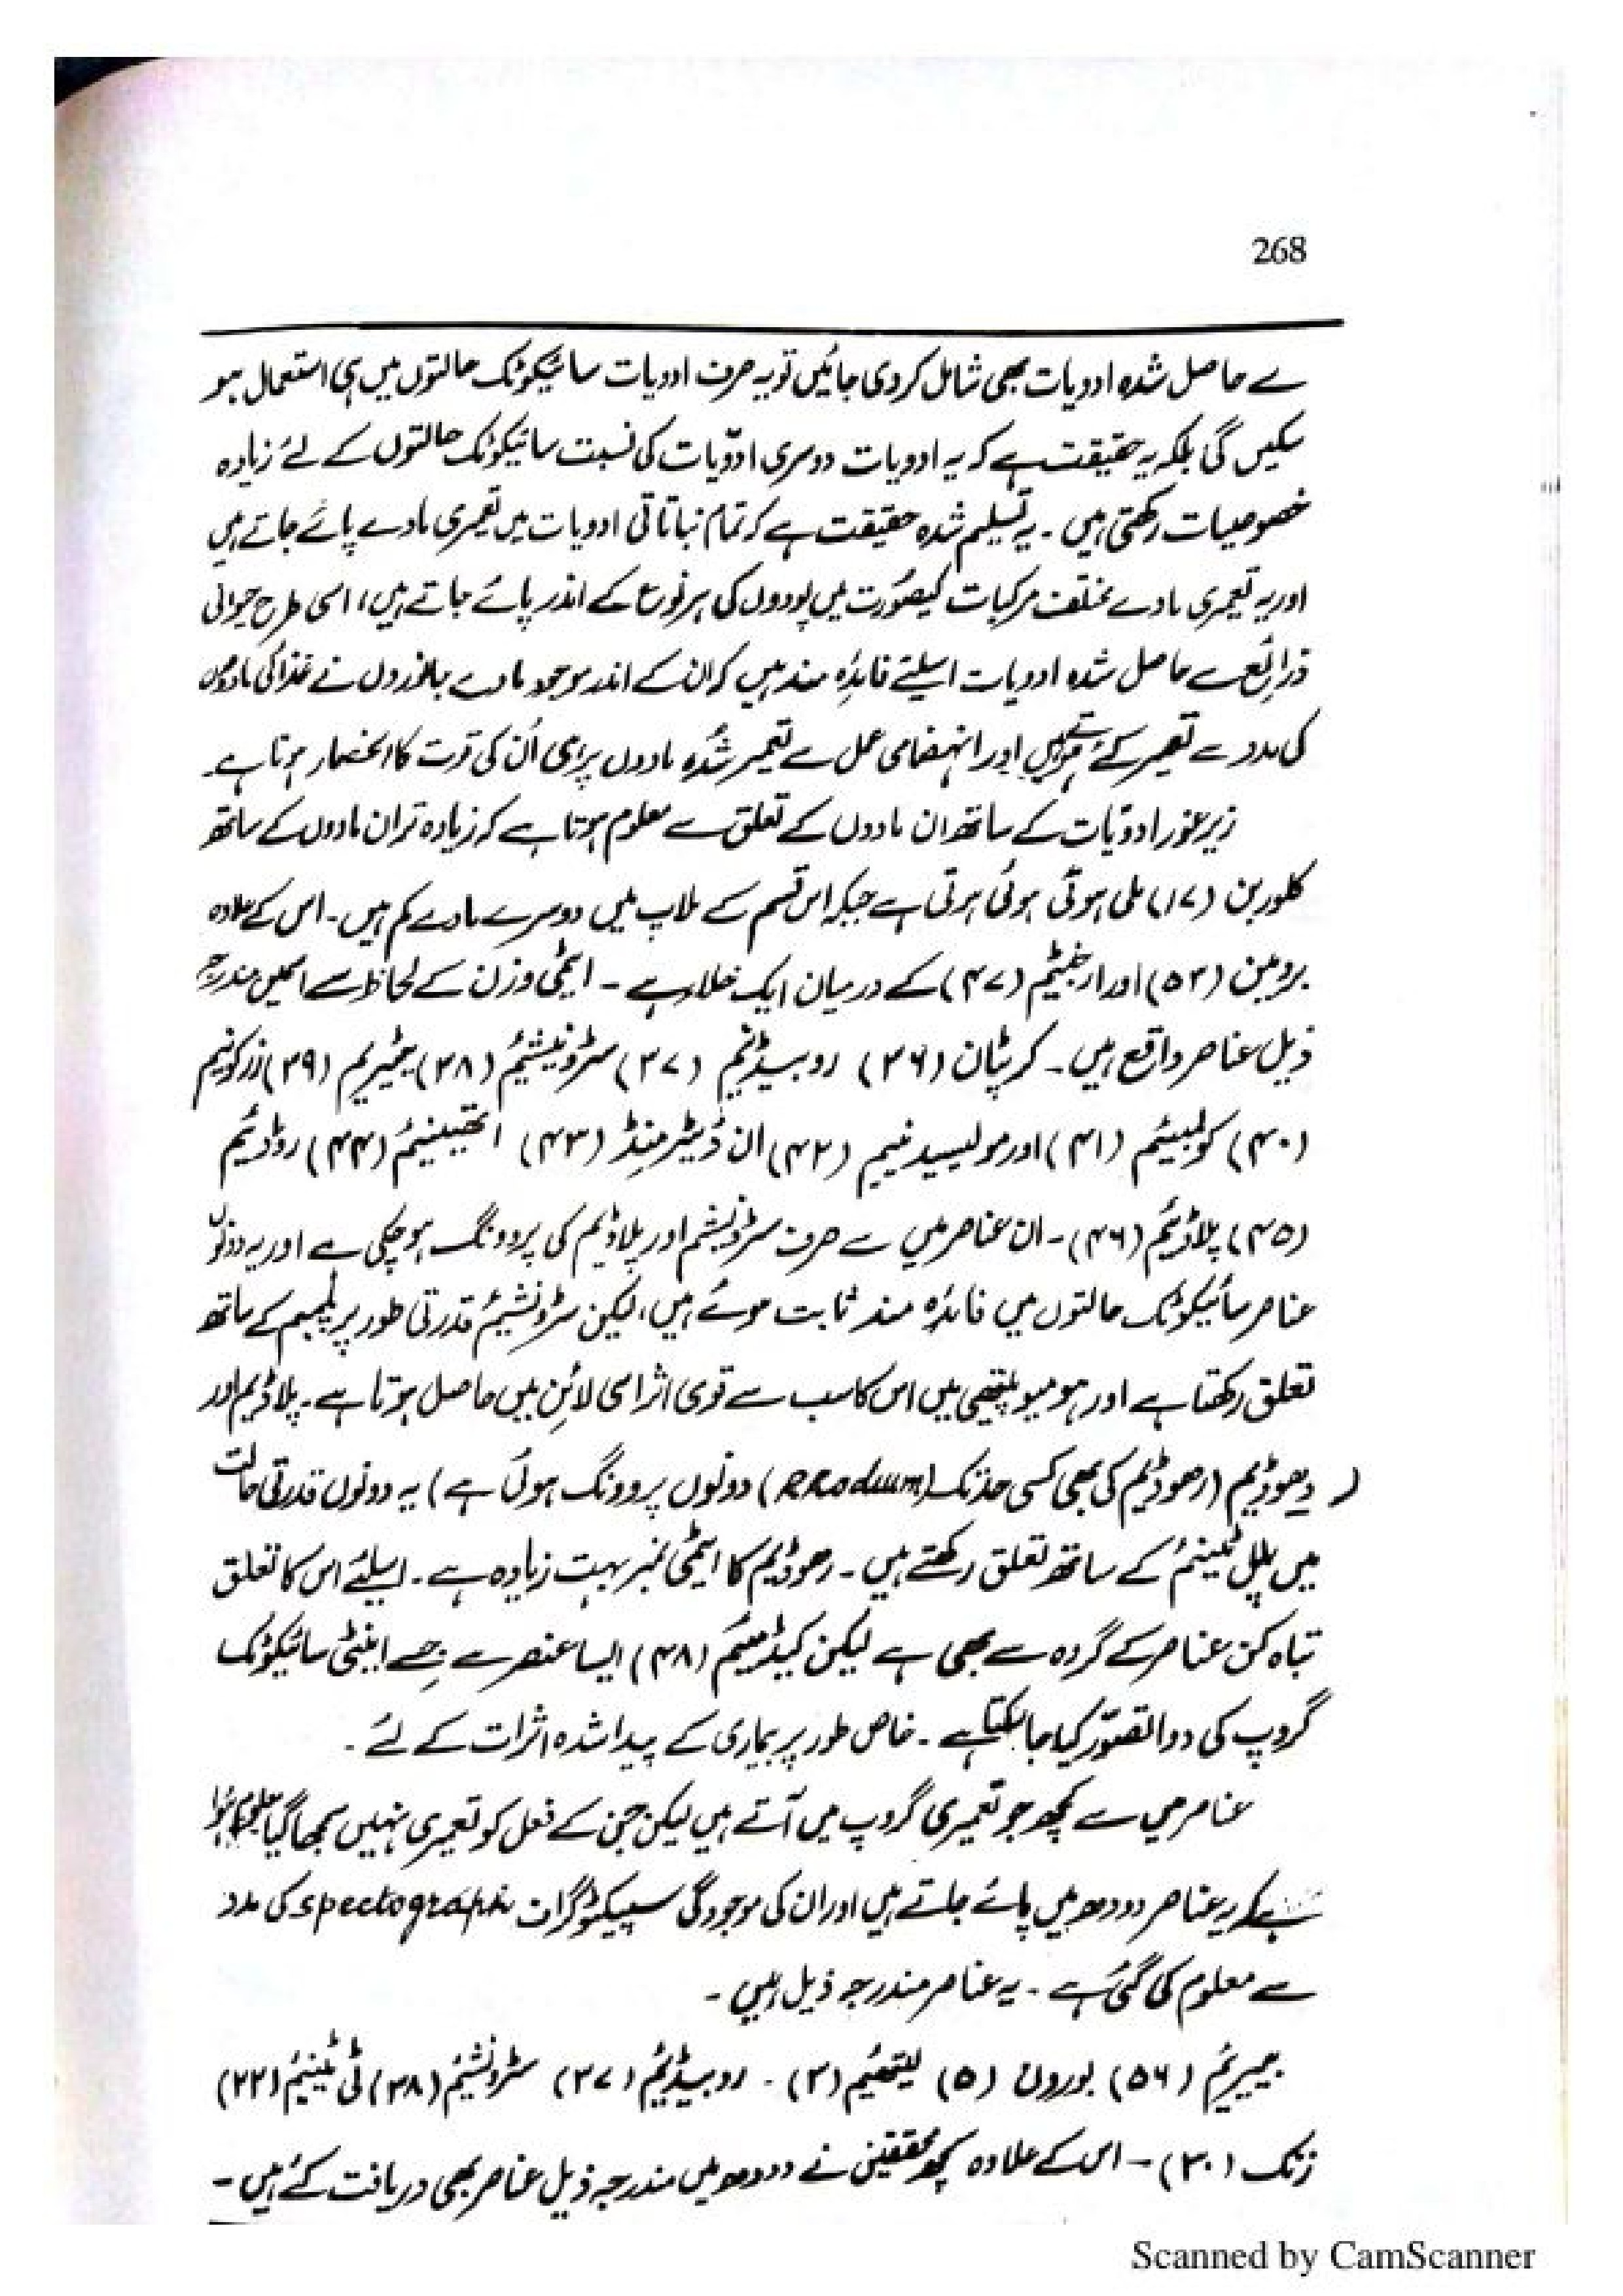 268
سے حاصل شدہ ادویات بھی شامل کر دی جائیں تو یہ صرف ادویات سائیکوٹک حالتوں میں ہی استعمال ہو
سکیں گی بلکہ یہ حقیقت ہے کہ یہ ادویات دوسری ادویّات کی نسبت سائیکوٹک حالتوں کے لئے زیادہ
خصوصیات رکھتی ہیں ۔ یہ تسلیم شدہ حقیقت ہے کہ تمام نباتاتی ادویات میں تعمیری مادے پائے جاتے ہیں
اور یہ تعمیری مادے مختلف مرکبات کیصورت میں پودوں کی ہر نوع کے اندر پائے جاتے ہیں، اسی طرح حیوانی
ذرائع سے حاصل شدہ ادویات اسلئے فائدہ مند ہیں کہ ان کے اندر موجود مادے جانوروں نے غذا کی مادوں
کی مدد سے تعمیر کئے ہوتے ہیں اور انہضامی عمل سے تعمیر شدہ مادوں پر ہی اُن کی قوت کا انحصار ہوتا ہے۔
زیر غور ادویّات کے ساتھ ان مادوں کے تعلق سے معلوم ہوتا ہے کہ زیادہ تر ان مادوں کے ساتھ
کلورین (۱۷) ملی ہوتی ہوئی ہوتی ہے جبکہ اس قسم کے ملاپ میں دوسرے مادے کم ہیں۔ اس کے علاوہ
برومین (۵۳) اور ارجنیٹم (۴۷) کے درمیان ایک خلاء ہے ۔ ایٹمی وزن کے لحاظ سے اسمیں مندرجہ
ذیل عناصر واقع ہیں۔ کرپٹان (۳۶) روبیڈیم (۳۷) سٹرونیشیم (۳۸) یٹیریم (۳۹) زرکونیم
(۴۰) کولمبیئم (۴۱) اور مولیبیڈنیم (۴۲) ان ڈیٹرمنڈ (۴۳) اتھینیئم (۴۴) روڈیئم
(۴۵) پلاڈیئم (۴۶)۔ ان عناصر میں سے صرف سٹرونیشم اور پلاڈیم کی پروونگ ہو چکی ہے اور یہ دونوں
عناصر سائیکوٹک حالتوں میں فائدہ مند ثابت ہوئے ہیں، لیکن سٹرونشیئم قدرتی طور پر پلمبم کے ساتھ
تعلق رکھتا ہے اور ہومیوپیتھی میں اس کا سب سے قوی اثر اسی لائن میں حاصل ہوتا ہے۔ پلاڈیم اور
رھوڈیم (رھوڈیم کی بھی کسی حد تک (RRodium) دونوں پروونگ ہوئی ہے) یہ دونوں قدرتی حالت
میں پلاٹینم کے ساتھ تعلق رکھتے ہیں ۔ رھوڈیم کا ایٹمی نمبر بہت زیادہ ہے۔ اسلئے اس کا تعلق
تباہ کن عناصر کے گروہ سے بھی ہے لیکن کیڈمیئم (۴۸) ایسا عنصر ہے جسے اینٹی سائیکوٹک
گروپ کی دوا تصوّر کیا جا سکتا ہے ۔ خاص طور پر بیماری کے پیدا شدہ اثرات کے لئے ۔
عناصر میں سے کچھ جو تعمیری گروپ میں آتے ہیں لیکن جن کے فعل کو تعمیری نہیں سمجھا گیا معلوم ہوا
ہے کہ یہ عناصر دودھ میں پائے جاتے ہیں اور ان کی موجودگی سپیکٹوگراف spectograph کی مدد
سے معلوم کی گئی ہے ۔ یہ عناصر مندرجہ ذیل ہیں ۔
بیریئم (۵۶) بورون (۵) لیتھیئم (۳) ۔ روبیڈیئم (۳۷) سٹرونشیئم (۳۸) ٹی ٹینیئم (۲۲)
زنک (۳۰) ۔ اس کے علاوہ کچھ محققین نے دودھ میں مندرجہ ذیل عناصر بھی دریافت کئے ہیں ۔
Scanned by CamScanner